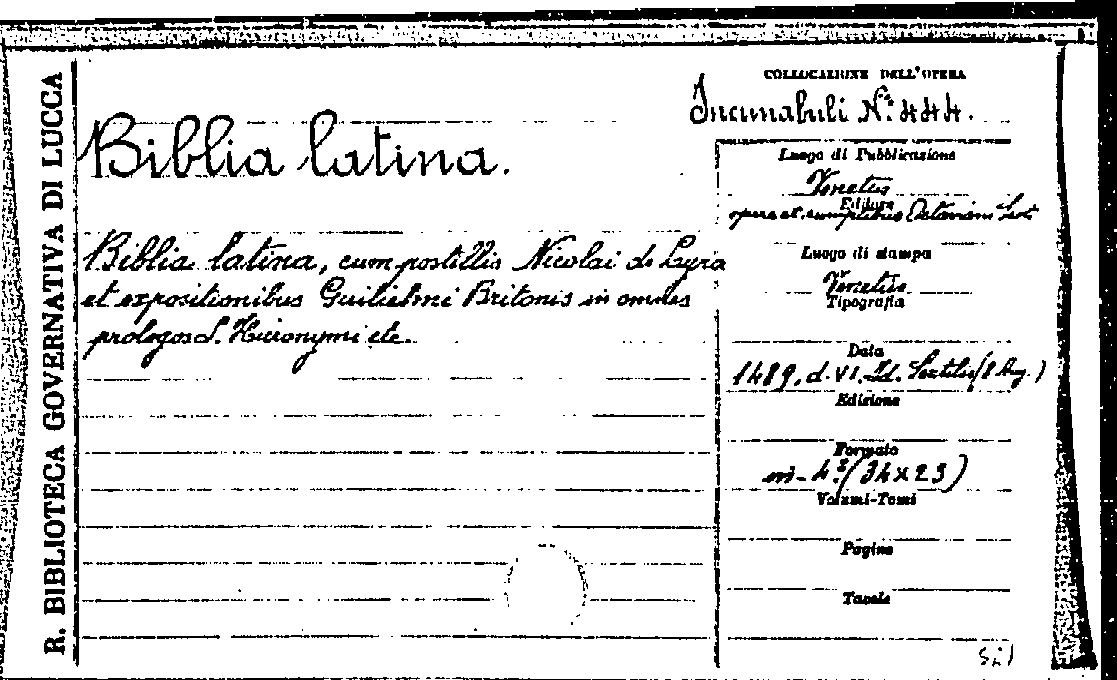 R. BIBLIOTECA GOVERNATIVA DI LUCCA
COLLOCAZIONE DELL'OPERA
Incunabuli N.º 444.
Biblia latina.
Biblia latina, cum postillis Nicolai de Lyra
et expositionibus Guilielmi Britonis in omnes
prologos S. Hieronymi etc.
Luogo di Pubblicazione
Venetiis
Editore
opera et sumptibus Octaviani Scoti
Luogo di stampa
Venetiis
Tipografia
Data
1489, d. VI. Id. Sextilis (8 Aug.)
Edizione
Formato
in-4º (34x23)
Volumi-Tomi
Pagine
Tavole